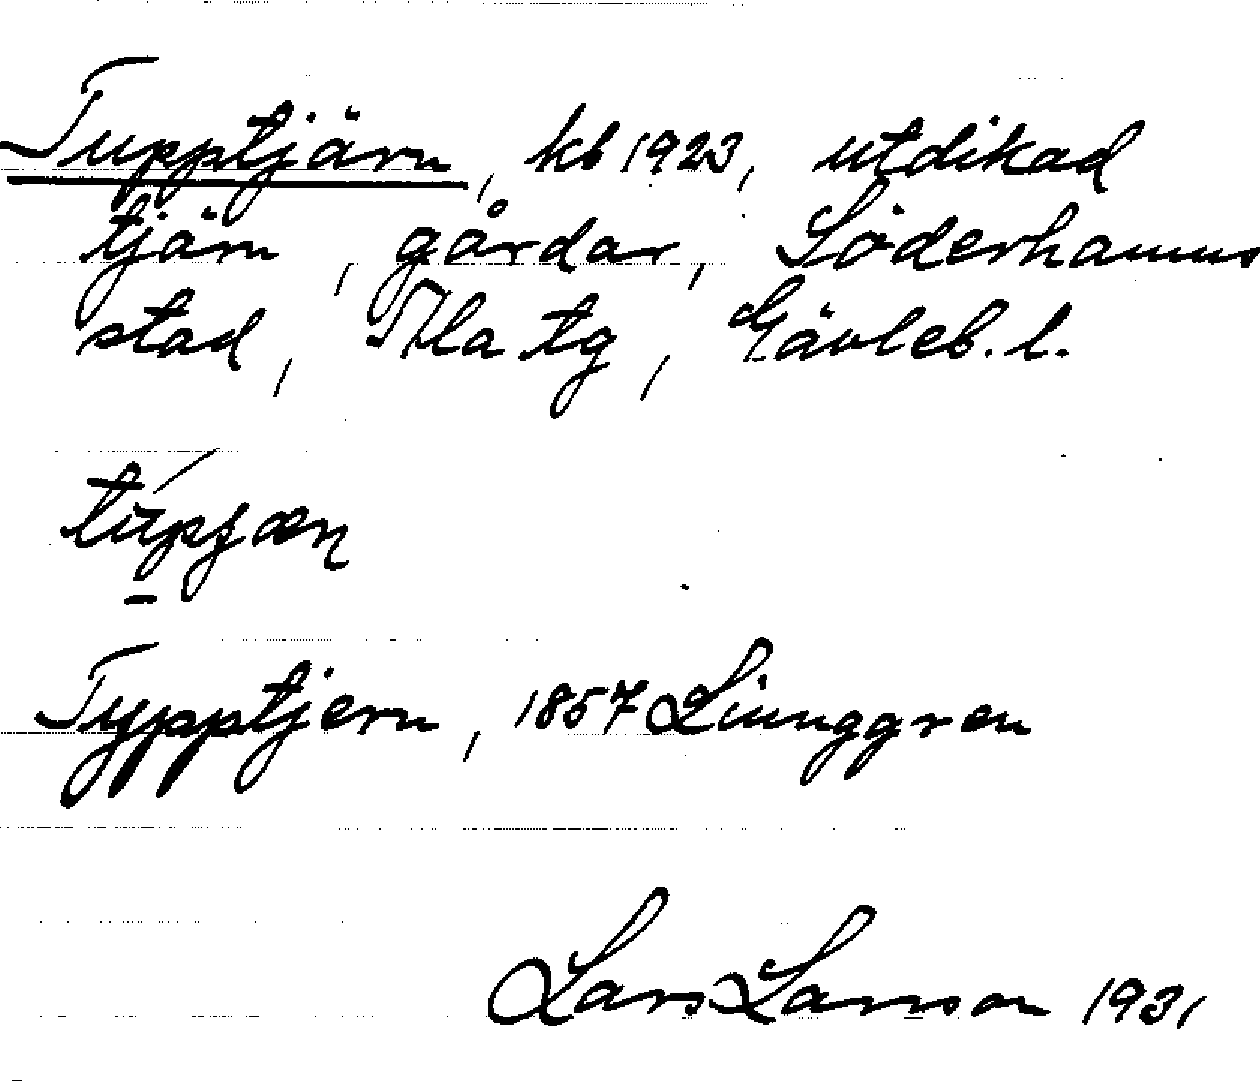 Tupptjärn, kb 1923, utdikad
tjärn, gårdar, Söderhamns
stad, Ala tg, Gävleb. l.
Typptjern, 1857 Ljunggren
Lars Larsson 1931